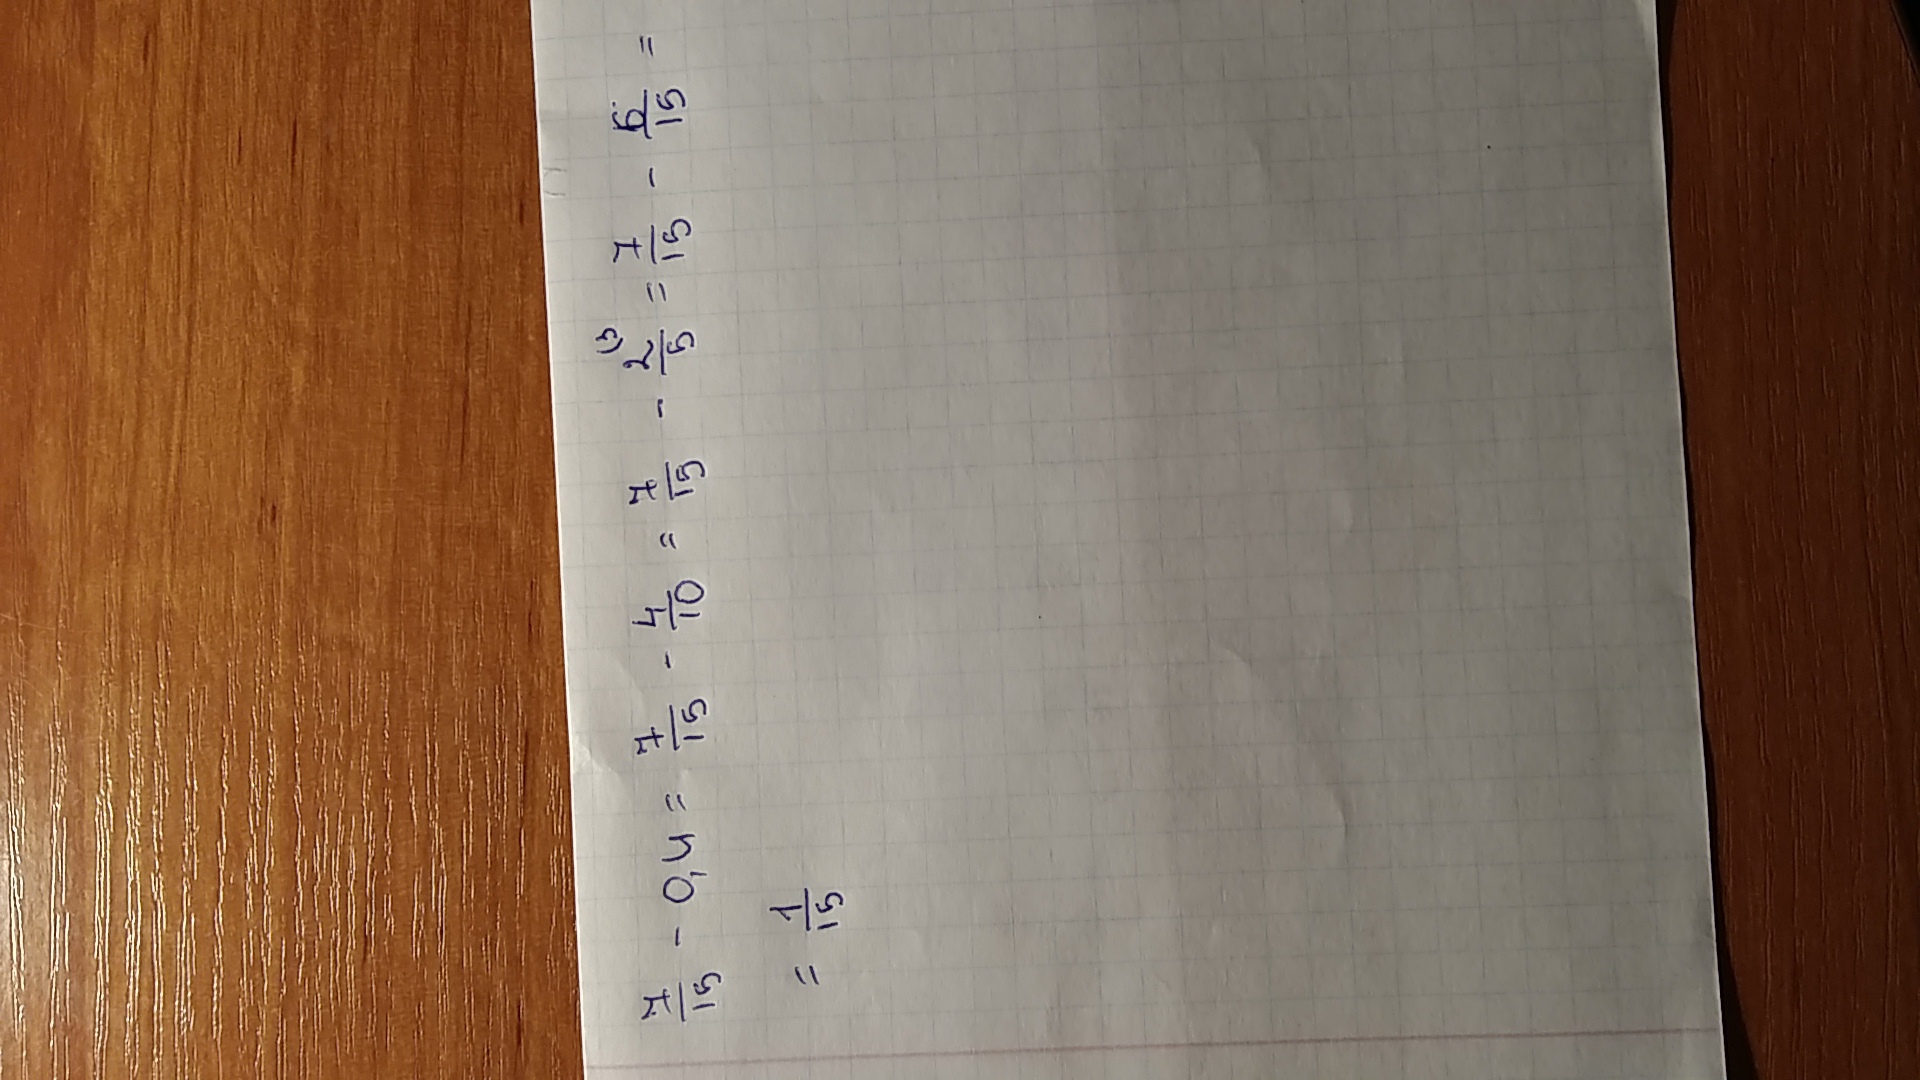 7/15 - 0,4 = 7/15 - 4/10 = 7/15 - 2/5 ³⁾ = 7/15 - 6/15 =
= 1/15